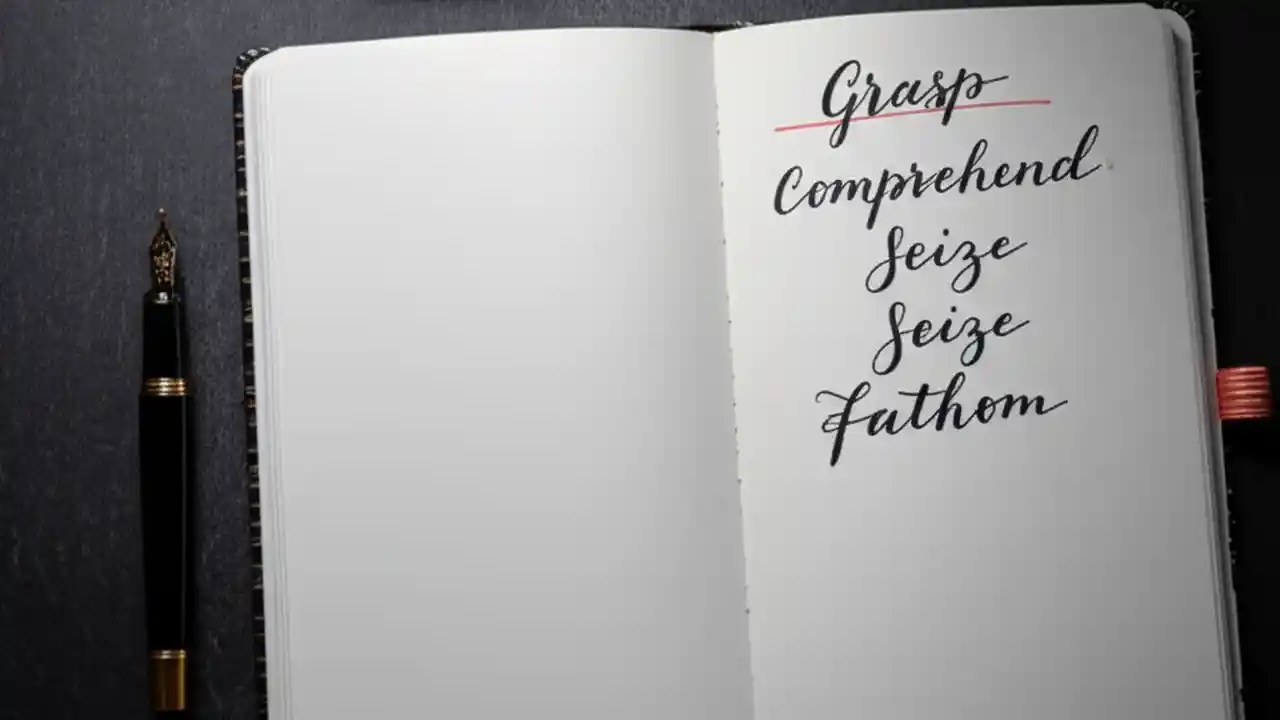 Grasp
Comprehend
Seize
Seize
Fathom